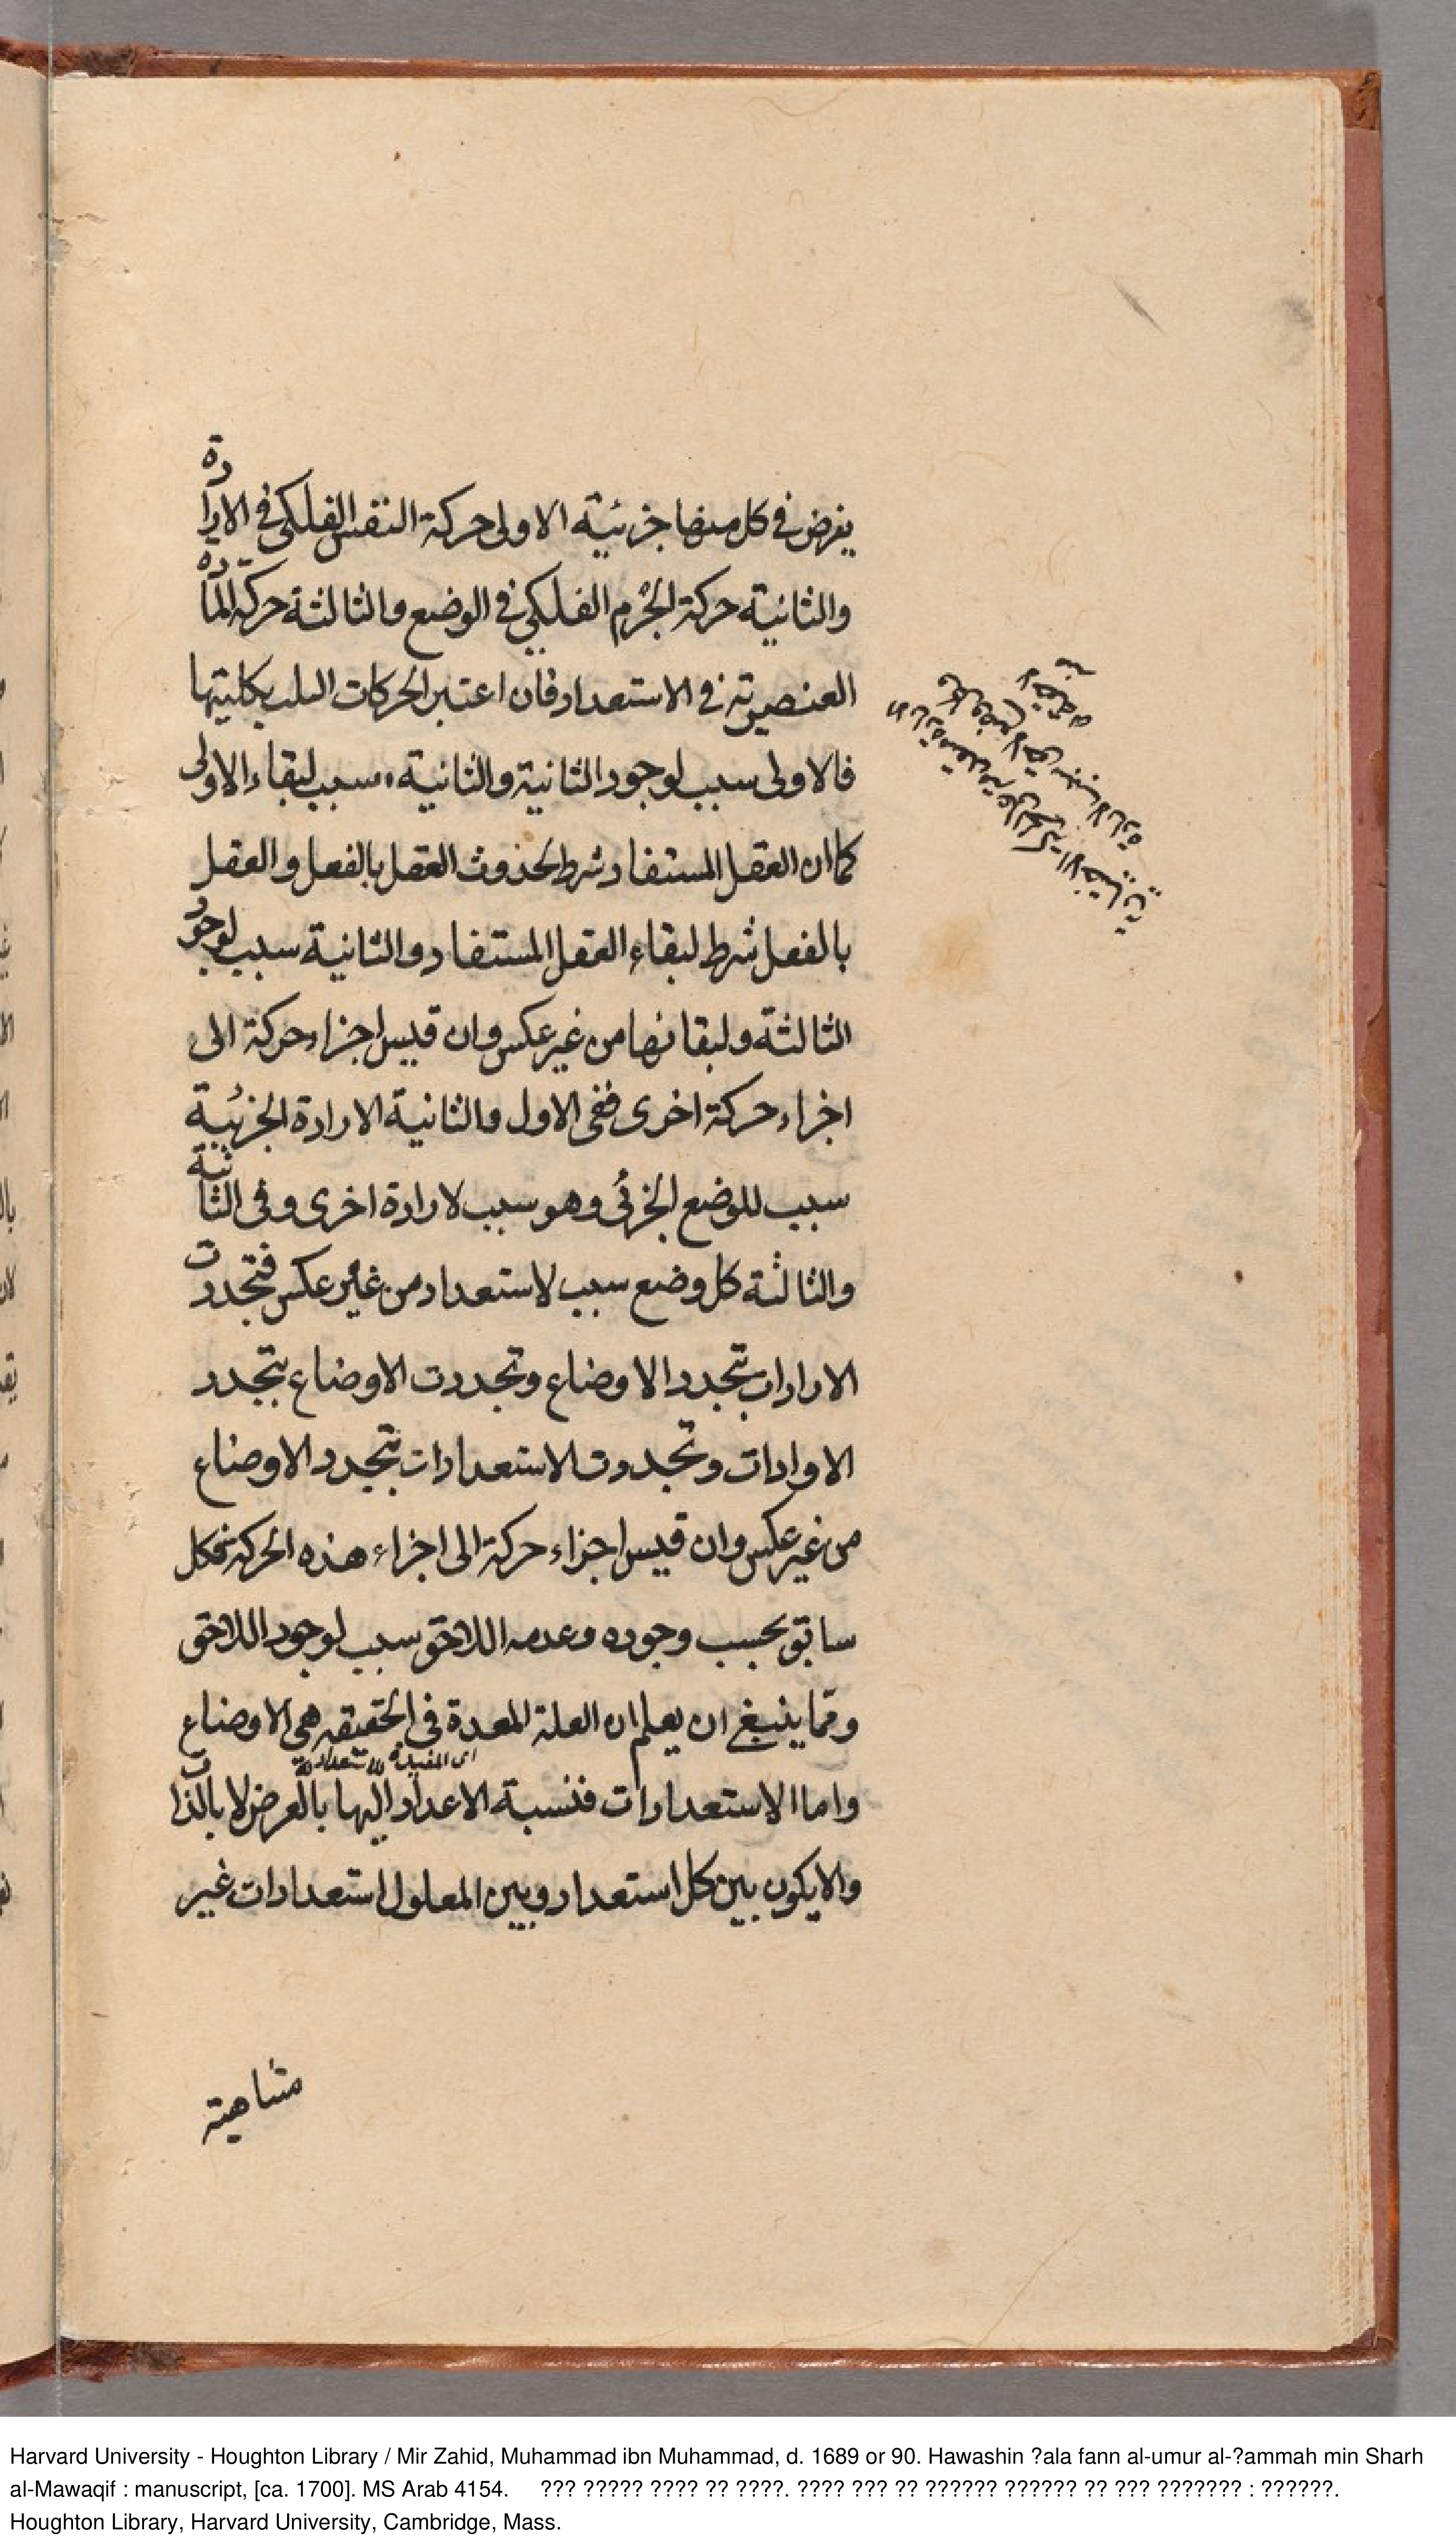 يفرض في كل منها جزئية الاولى حركة النفس الفلكي في الارادة
والثانية حركة الجرم الفلكي في الوضع والثالثة حركة المادة
العنصرية في الاستعداد فان اعتبر الحركات الثلث بكليتها
فالاولى سبب لوجود الثانية والثانية سبب لبقاء الاولى
كما ان العقل المستفاد شرط لحدوث العقل بالفعل والعقل
بالفعل شرط لبقاء العقل المستفاد والثانية سبب لوجود
الثالثة ولبقائها من غير عكس وان قيس اجزاء حركة الى
اجزاء حركة اخرى ففي الاول والثانية الارادة الجزئية
سبب للوضع الجزئي وهو سبب لارادة اخرى وفي الثانية
والثالثة كل وضع سبب لاستعداد من غير عكس فتجددت
الارادات بتجدد الاوضاع وتجددت الاوضاع بتجدد
الارادات وتجددت الاستعدادات بتجدد الاوضاع
من غير عكس وان قيس اجزاء حركة الى اجزاء هذه الحركة فكل
سابق بحسب وجوده وعدمه اللاحق سبب لوجود اللاحق
ومما ينبغي ان يعلم ان العلة المعدة في الحقيقة هي الاوضاع
واما الاستعدادات فنسبة الاعداد اليها بالعرض لا بالذات
والا يكون بين كل استعداد وبين المعلول استعدادات غير
متناهية
Harvard University - Houghton Library / Mir Zahid, Muhammad ibn Muhammad, d. 1689 or 90. Hawashin ?ala fann al-umur al-?ammah min Sharh
al-Mawaqif : manuscript, [ca. 1700]. MS Arab 4154. ??? ????? ???? ?? ????. ???? ??? ?? ?????? ?????? ?? ??? ??????? : ??????.
Houghton Library, Harvard University, Cambridge, Mass.